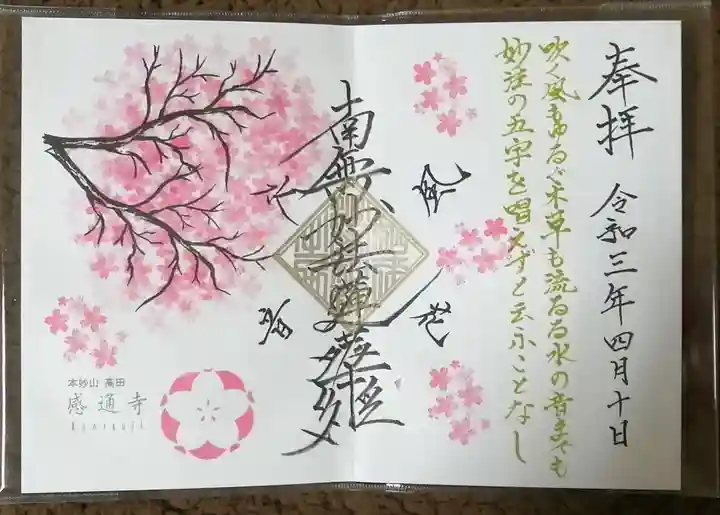 奉拝
令和三年四月十日
吹く風もゆるぐ木草も流るる水の音までも
妙法の五字を唱えずと云ふことなし
南無妙法蓮華経
本妙山 高田
感通寺